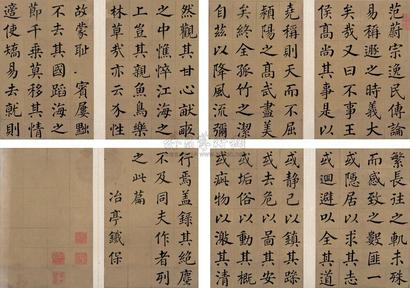 范蔚宗逸民傳論
易稱遯之時義大
矣哉又曰不事王
侯高尚其事是以
堯稱則天而不屈
潁陽之高武盡美
矣終全孤竹之潔
自茲以降風流彌
繁長往之軌未殊
而感致之數匪一
或隱居以求其志
或迴避以全其道
或靜己以鎮其躁
或去危以圖其安
或垢俗以動其概
或疵物以激其清
然觀其甘心畎畝
之中憔悴江海之
上豈其親魚鳥樂
林草哉亦云介性
故蒙恥之賓屢黜
不去其國蹈海之
節千乘莫移其情
適使矯易去就則
行焉蓋錄其絕塵
不及同夫作者列
之此篇
冶亭鐵保